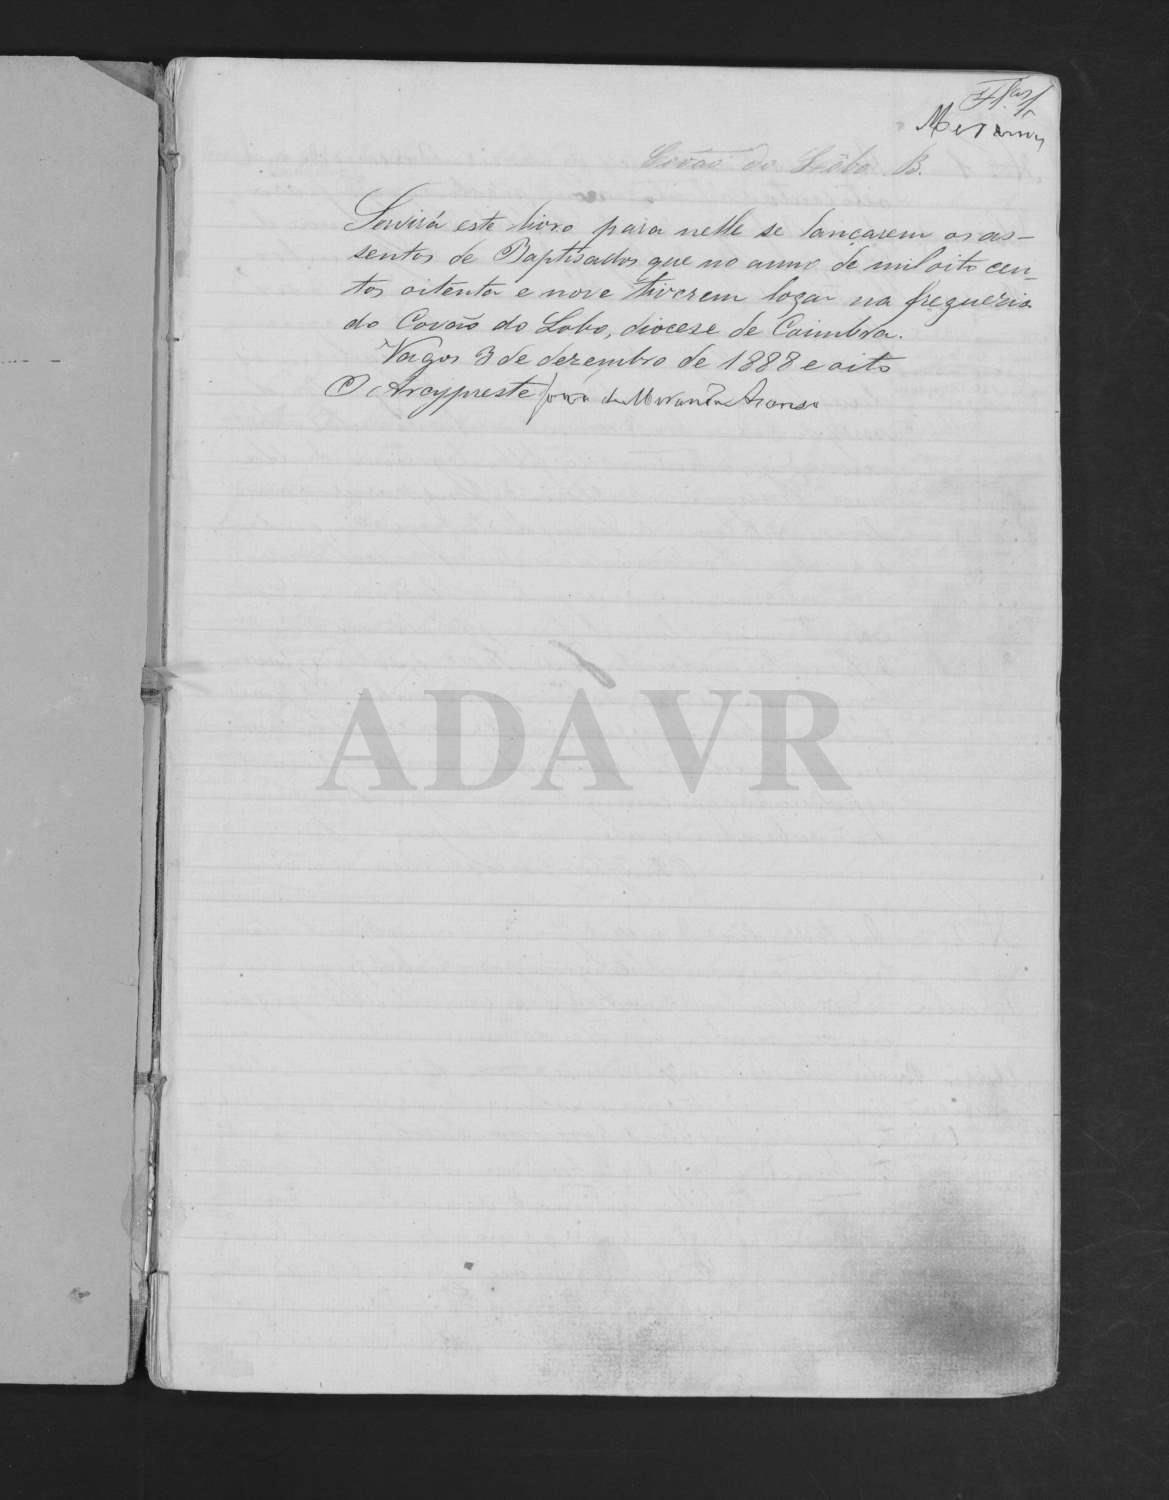 Fls. 1
Covão do Lobo B.
Servirá este livro para nelle se lançarem os as-
sentos de Baptisados que no anno de mil oito cen-
tos oitenta e nove tiverem logar na freguesia
do Covão do Lobo, diocese de Coimbra.
Vagos 3 de dezembro de 1888 e oito
O Arcypreste João de Miranda Ascenso
ADAVR